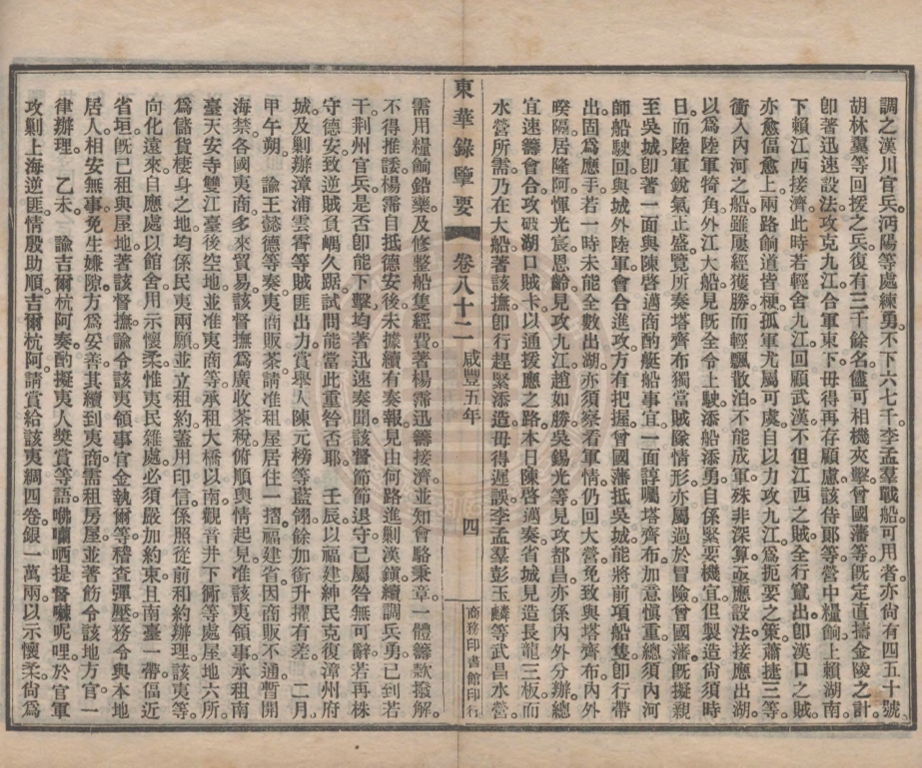 調之漢川官兵沔陽等處練勇。不下六七千。李孟羣戰船可用者。亦尚有四五十號。
胡林翼等回援之兵。復有三千餘名。儘可相機夾擊。曾國藩等既定直擣金陵之計。
卽著迅速設法攻克九江。合軍東下。毋得再存顧慮。該侍郞等營中糧餉。上賴湖南。
下賴江西接濟。此時若輕舍九江。回顧武漢。不但江西之賊。全行竄出。卽漢口之賊。
亦愈傴愈上。兩路餉道皆梗。孤軍尤屬可虞。自以力攻九江。爲扼要之策。蕭捷三等
衝入內河之船。雖屢經獲勝。而輕飄散泊。不能成軍。殊非深算。亟應設法接應出湖。
以爲陸軍犄角。外江大船。見既全令上駛。添船添勇。自係緊要機宜。但製造尚須時
日。而陸軍銳氣正盛。覽所奏塔齊布獨當賊隊情形。亦屬過於冒險。曾國藩既擬親
至吳城。卽著一面與陳啓邁商酌艇船事宜。一面諄囑塔齊布加意愼重。總須內河
師船駛回。與城外陸軍會合進攻。方有把握。曾國藩抵吳城。能將前項船隻卽行帶
出。固爲應手。若一時未能全數出湖。亦須察看軍情。仍回大營。免致與塔齊布內外
暌隔。居隆阿惲光宸恩齡見攻九江。趙如勝吳錫光等見攻都昌。亦係內外分辦。總
宜速籌會合。攻破湖口賊卡。以通援應之路。本日陳啓邁奏。省城見造長龍三板。而
水營所需。乃在大船。著該撫卽行趕緊添造。毋得遲誤。李孟羣彭玉麟等武昌水營。
東華錄擥要　卷八十二　咸豐五年　四　商務印書館印行
需用糧餉鉛藥。及修整船隻經費。著楊霈迅籌接濟。並知會駱秉章。一體籌款撥解。
不得推諉。楊霈自抵德安後。未據續有奏報。見由何路進剿漢鎭。續調兵勇。已到若
干。荆州官兵。是否卽能下擊。均著迅速奏聞。該督節節退守。已屬咎無可辭。若再株
守德安。致逆賊負嵎久踞。試問能當此重咎否耶。　壬辰。以福建紳民克復漳州府
城。及剿辦漳浦雲霄等賊匪出力。賞舉人陳元榜等藍翎。餘加銜升擢有差。　二月
甲午朔。　諭王懿德等奏。夷商販茶。請准租屋居住一摺。福建省因商販不通。暫開
海禁。各國夷商。多來貿易。該督撫爲廣收茶稅。俯順輿情起見。准該夷領事承租南
臺天安寺雙江臺後空地。並准夷商等承租大橋以南。觀音井下衕等處屋地六所。
爲儲貨棲身之地。均係民夷兩願。並立租約。蓋用印信。係照從前和約辦理。該夷等
向化遠來。自應處以館舍。用示懷柔。惟夷民雜處。必須嚴加約束。且南臺一帶。傴近
省垣。既已租與屋地。著該督撫。諭令該夷領事官金執爾等稽查彈壓。務令與本地
居人。相安無事。免生嫌隙。方爲妥善。其續到夷商需租房屋。並著飭令該地方官一
律辦理。　乙未。　諭吉爾杭阿奏。酌擬夷人獎賞等語。㗶囒哂提督囌呢哩。於官軍
攻剿上海逆匪。情殷助順。吉爾杭阿請賞給該夷綢四卷。銀一萬兩。以示懷柔。尙爲